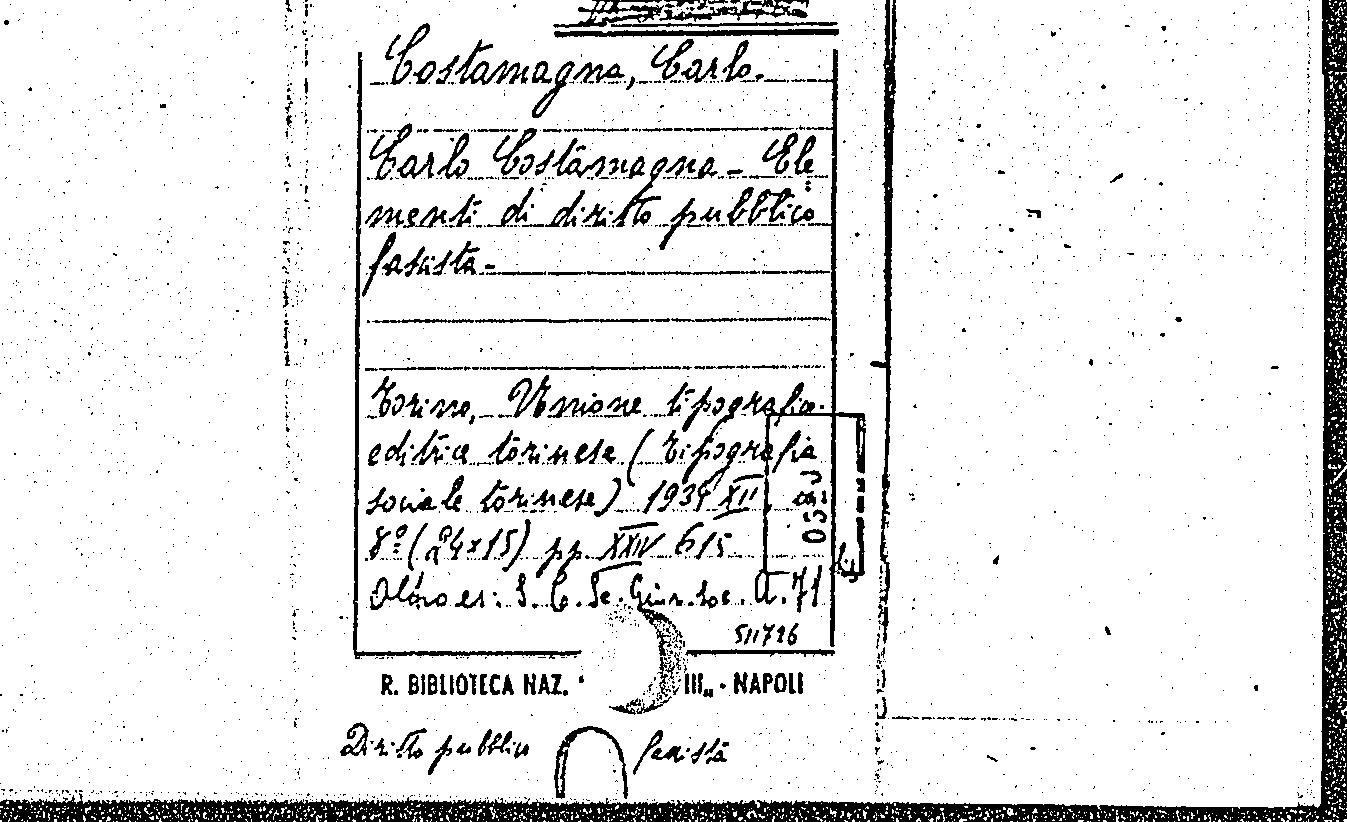 Costamagna, Carlo.
Carlo Costamagna - Ele
menti di diritto pubblico
fascista -
Torino, Unione tipografia
editrice torinese (Tipografia
sociale torinese) 1934 XII, in
8º (24x15) pp. XXIV 615
Altro es: S. C. Se. Giur. Soc. A. 71
511726
R. BIBLIOTECA NAZ. III,, - NAPOLI
Diritto pubblico fascista